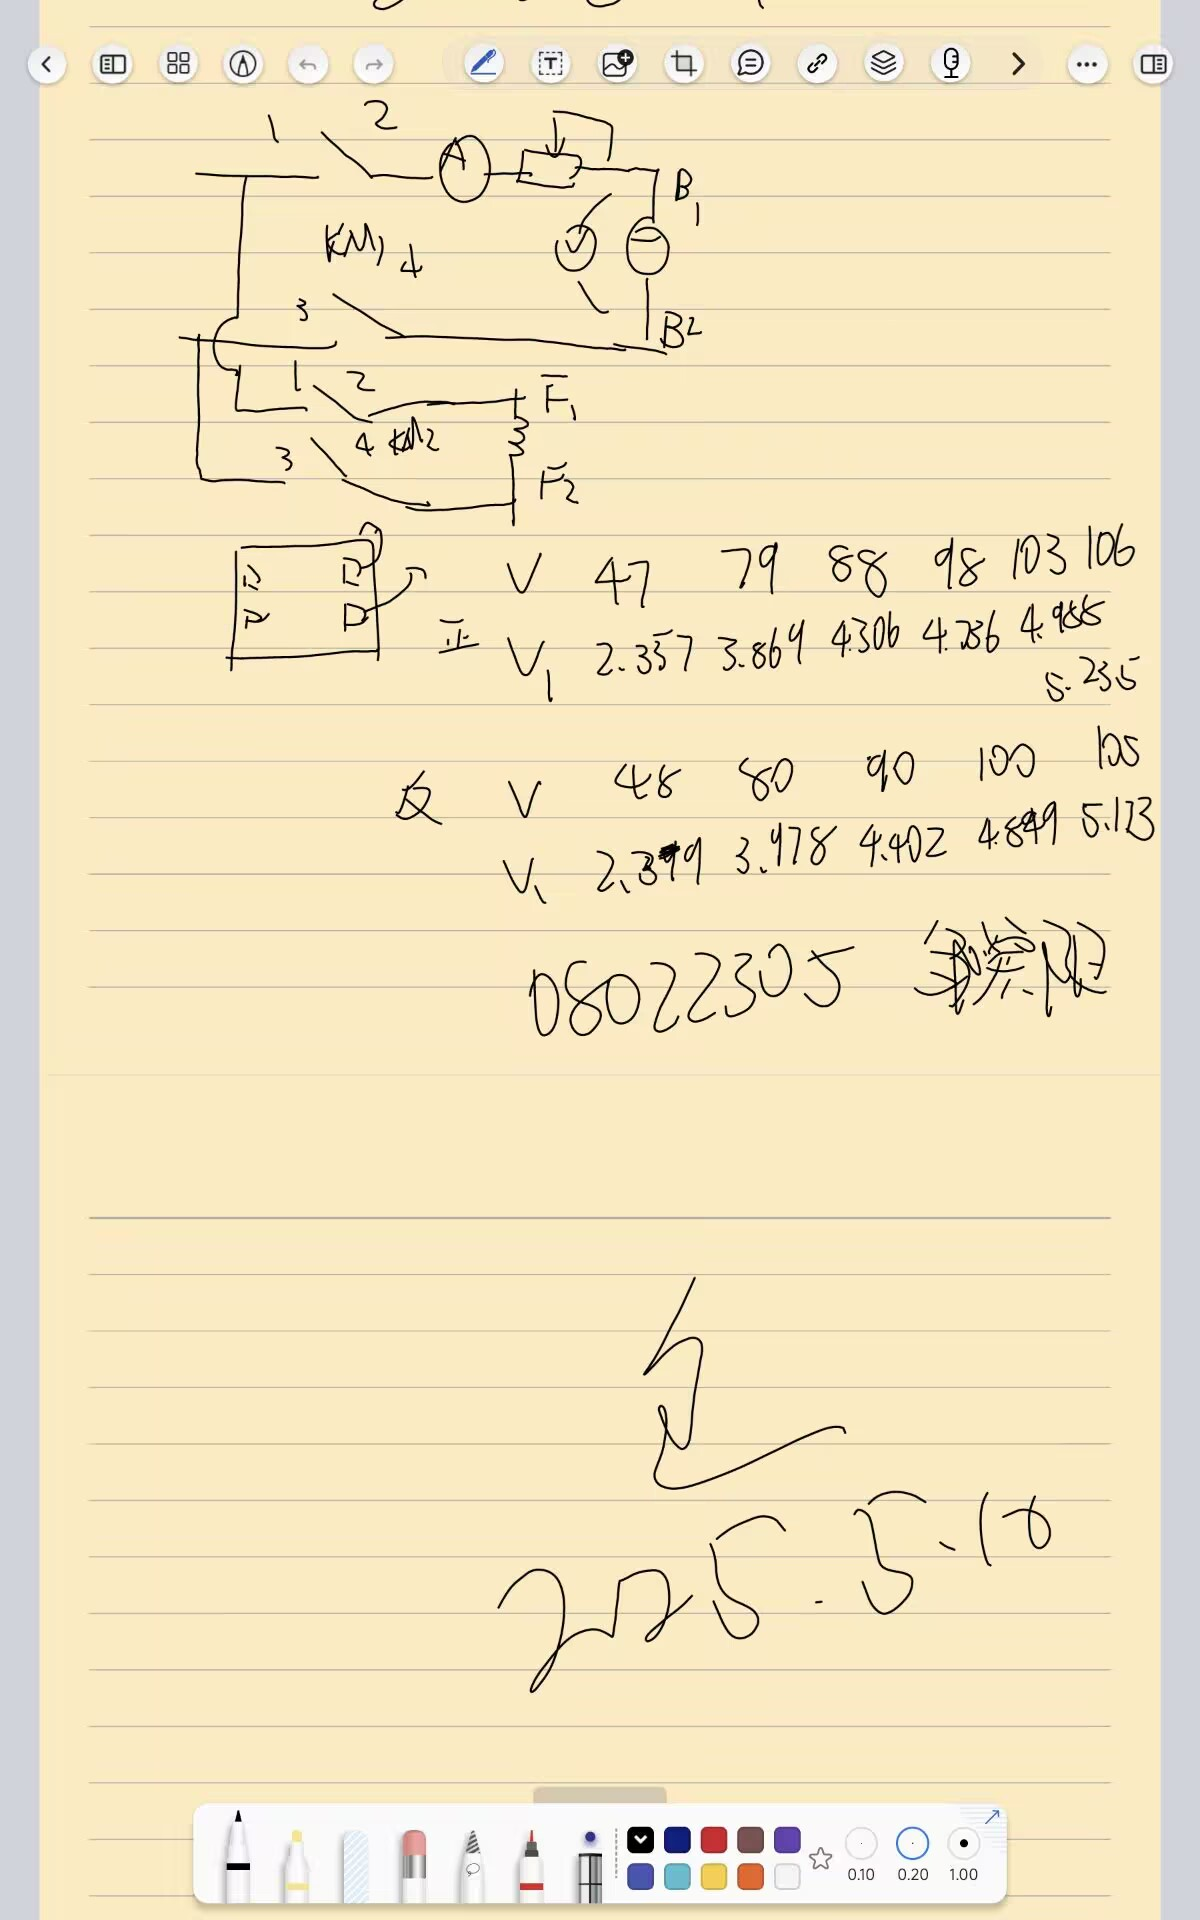 1 2 A B1
KM1 4 V
3 B2
1 2 F1
3 4 KM2 F2
V 47 79 88 98 103 106
正 V1 2.357 3.869 4.306 4.786 4.988
5.235
反 V 48 80 90 100 105
V1 3.978 4.402 4.849 5.123
08022305
2025.5.16
0.10 0.20 1.00